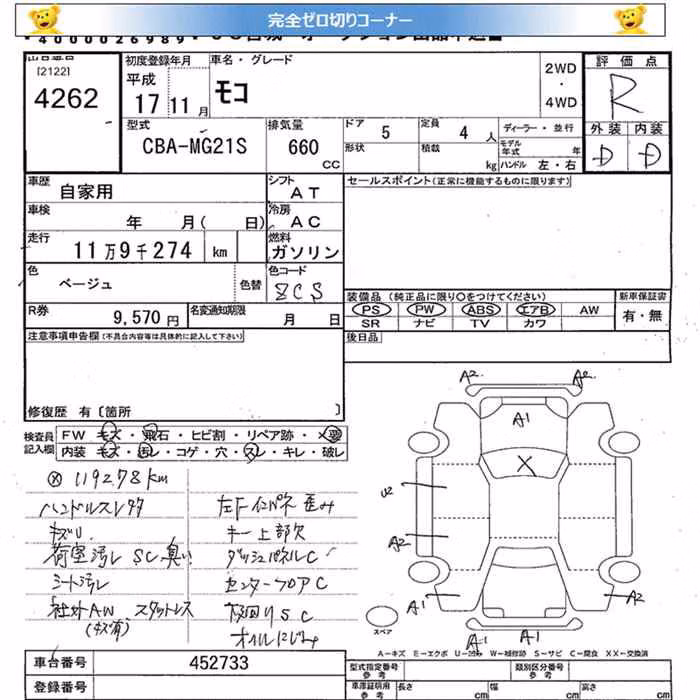 完全ゼロ切りコーナー
4000026989
[2122]
4262
初度登録年月
平成
17 11月
車名・グレード
モコ
2WD
・
4WD
評価点
R
外装 内装
D D
型式
CBA-MG21S
排気量
660
CC
ドア
5
定員
4 人
形状
積載
kg
ディーラー・並行
モデル
年式
年
ハンドル 左・右
車歴
自家用
シフト
AT
車検
年 月( 日)
冷房
AC
走行
11万9千274 km
燃料
ガソリン
色
ベージュ
色替
色コード
ZCS
R券
9,570 円
名変通知期限
月 日
セールスポイント(正常に機能するものに限ります)
装備品 (純正品に限り○をつけてください)
PS PW ABS エアB AW
SR ナビ TV カワ
新車保証書
有・無
後日品
注意事項申告欄(不具合内容等は具体的に記入して下さい)
修復歴 有〔箇所 〕
検査員
記入欄
FW キズ・飛石・ヒビ割・リペア跡・×要
内装 キズ・汚レ・コゲ・穴・スレ・キレ・破レ
119278km
ハンドルスレ
キズU
荷室汚レ SC臭い
シート汚レ
社外AW スタットレス
(キズ有)
左Fインパネ歪み
キー上部欠
ダッシュパネルC
センターフロアC
下回りSC
オイルにじみ
A2 A2
A1
X
U2
A2
A1 A2
A1 A1
スペア
A-キズ E-エクボ U-凹み W-補修跡 S-サビ C-腐食 XX-交換済
車台番号
452733
登録番号
型式指定番号
参考
類別区分番号
参考
車庫証明用
参考
長さ
cm
幅
cm
高さ
cm